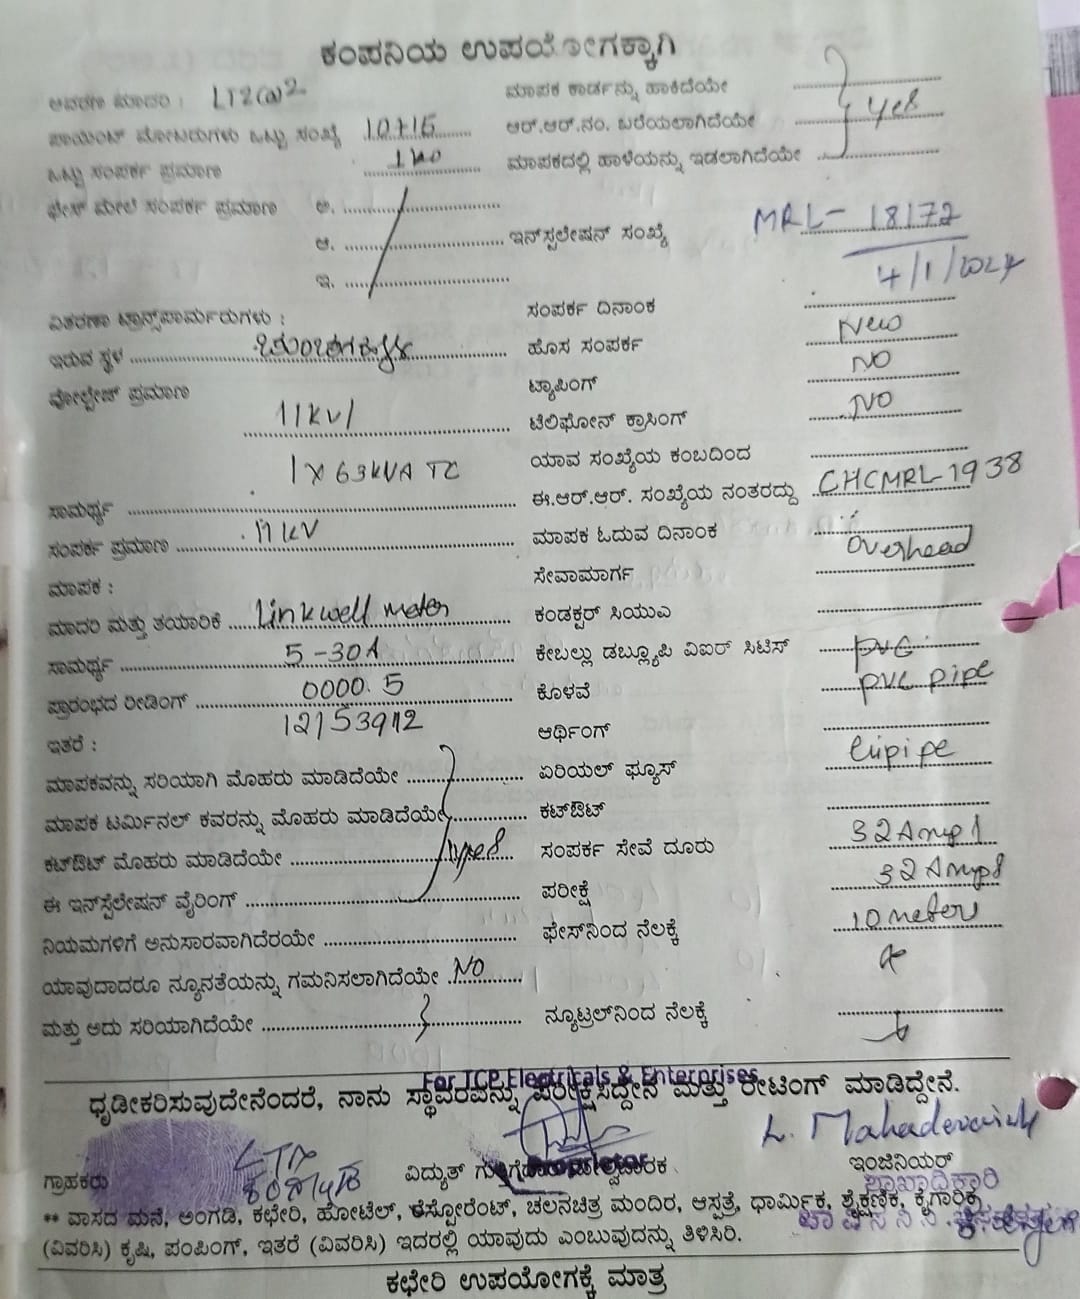 ಕಂಪನಿಯ ಉಪಯೋಗಕ್ಕಾಗಿ
ಆವರಣ ಮಾದರಿ : LT2(a)2 ಮಾಪಕ ಕಾರ್ಡನ್ನು ಹಾಕಿದೆಯೇ
ಪಾಯಿಂಟ್ ಮೋಟರುಗಳು ಒಟ್ಟು ಸಂಖ್ಯೆ ಆರ್.ಆರ್.ನಂ. ಬರೆಯಲಾಗಿದೆಯೇ Yes
ಒಟ್ಟು ಸಂಪರ್ಕ ಪ್ರಮಾಣ ಮಾಪಕದಲ್ಲಿ ಹಾಳೆಯನ್ನು ಇಡಲಾಗಿದೆಯೇ
ಫೇಸ್ ಮೇಲೆ ಸಂಪರ್ಕ ಪ್ರಮಾಣ ಅ.
ಆ. ಇನ್‌ಸ್ಟಲೇಷನ್ ಸಂಖ್ಯೆ MRL-18172
ಇ. 4/1/2024
ವಿತರಣಾ ಟ್ರಾನ್ಸ್‌ಫಾರ್ಮರುಗಳು : ಸಂಪರ್ಕ ದಿನಾಂಕ
ಇರುವ ಸ್ಥಳ ಹೊಸ ಸಂಪರ್ಕ New
ವೋಲ್ಟೇಜ್ ಪ್ರಮಾಣ ಟ್ಯಾಪಿಂಗ್ NO
11kv/ ಟೆಲಿಫೋನ್ ಕ್ರಾಸಿಂಗ್ NO
1 X 63KVA TC ಯಾವ ಸಂಖ್ಯೆಯ ಕಂಬದಿಂದ
ಸಾಮರ್ಥ್ಯ ಈ.ಆರ್.ಆರ್. ಸಂಖ್ಯೆಯ ನಂತರದ್ದು CHCMRL-1938
ಸಂಪರ್ಕ ಪ್ರಮಾಣ 11 KV ಮಾಪಕ ಓದುವ ದಿನಾಂಕ
ಮಾಪಕ : ಸೇವಾಮಾರ್ಗ overhead
ಮಾದರಿ ಮತ್ತು ತಯಾರಿಕೆ Linkwell meter ಕಂಡಕ್ಟರ್ ಸಿಯುಎ
ಸಾಮರ್ಥ್ಯ 5-30A ಕೇಬಲ್ಲು ಡಬ್ಲ್ಯೂಪಿ ವಿಐರ್ ಸಿಟಿಸ್ PVC
ಪ್ರಾರಂಭದ ರೀಡಿಂಗ್ 0000.5 ಕೊಳವೆ pvc pipe
ಇತರೆ : 12153912 ಆರ್ಥಿಂಗ್
ಮಾಪಕವನ್ನು ಸರಿಯಾಗಿ ಮೊಹರು ಮಾಡಿದೆಯೇ ಏರಿಯಲ್ ಫ್ಯೂಸ್
ಮಾಪಕ ಟರ್ಮಿನಲ್ ಕವರನ್ನು ಮೊಹರು ಮಾಡಿದೆಯೇ ಕಟ್‌ಔಟ್
ಕಟ್‌ಔಟ್ ಮೊಹರು ಮಾಡಿದೆಯೇ ಸಂಪರ್ಕ ಸೇವೆ ದೂರು
ಈ ಇನ್‌ಸ್ಟಲೇಷನ್ ವೈರಿಂಗ್ ಪರೀಕ್ಷೆ
ನಿಯಮಗಳಿಗೆ ಅನುಸಾರವಾಗಿದೆರಯೇ ಫೇಸ್‌ನಿಂದ ನೆಲಕ್ಕೆ 10 meters
ಯಾವುದಾದರೂ ನ್ಯೂನತೆಯನ್ನು ಗಮನಿಸಲಾಗಿದೆಯೇ NO
ಮತ್ತು ಅದು ಸರಿಯಾಗಿದೆಯೇ ನ್ಯೂಟ್ರಲ್‌ನಿಂದ ನೆಲಕ್ಕೆ
For TCP Electricals & Enterprises
ಧೃಡೀಕರಿಸುವುದೇನೆಂದರೆ, ನಾನು ಸ್ಥಾವರವನ್ನು ಪರೀಕ್ಷಿಸಿದ್ದೇನೆ ಮತ್ತು ರೇಟಿಂಗ್ ಮಾಡಿದ್ದೇನೆ.
L. Mahadevaiah
ಗ್ರಾಹಕರು ವಿದ್ಯುತ್ Proprietor ಇಂಜಿನಿಯರ್
ಶಾಖಾಧಿಕಾರಿ
** ವಾಸದ ಮನೆ, ಅಂಗಡಿ, ಕಛೇರಿ, ಹೋಟೆಲ್, ರೆಸ್ಟೋರೆಂಟ್, ಚಲನಚಿತ್ರ ಮಂದಿರ, ಆಸ್ಪತ್ರೆ, ಧಾರ್ಮಿಕ, ಶೈಕ್ಷಣಿಕ, ಕೈಗಾರಿಕ
(ವಿವರಿಸಿ) ಕೃಷಿ, ಪಂಪಿಂಗ್, ಇತರೆ (ವಿವರಿಸಿ) ಇದರಲ್ಲಿ ಯಾವುದು ಎಂಬುವುದನ್ನು ತಿಳಿಸಿರಿ.
ಕಛೇರಿ ಉಪಯೋಗಕ್ಕೆ ಮಾತ್ರ